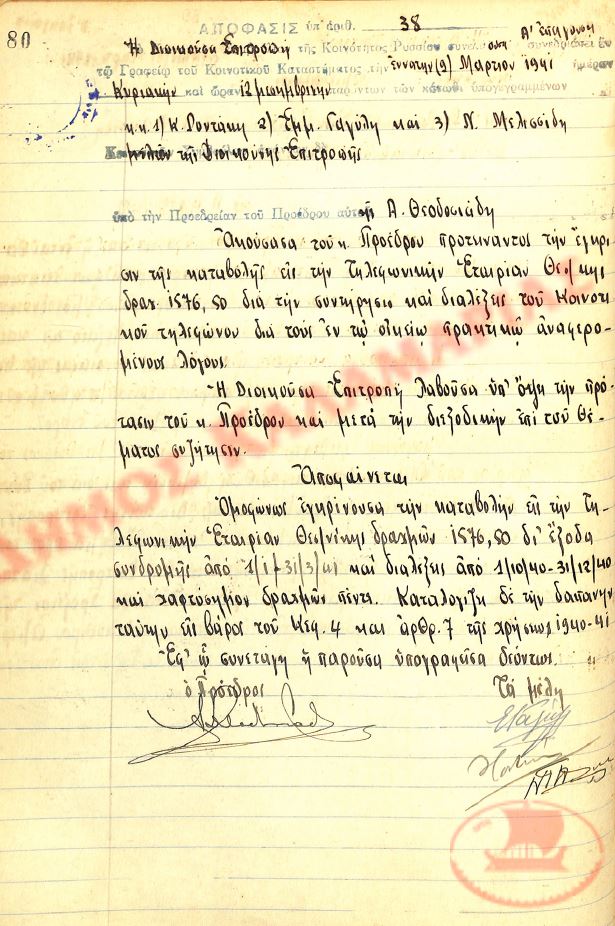 80
ΑΠΟΦΑΣΙΣ ὑπ' ἀριθ. 38
Ἡ Διοικοῦσα Ἐπιτροπὴ τῆς Κοινότητος Ρυσσίου συνελθοῦσα συνεδριάζει ἐν
τῷ Γραφείῳ τοῦ Κοινοτικοῦ Καταστήματος τὴν ἐννάτην (9) Μαρτίου 1941 ἡμέραν
Κυριακὴν καὶ ὥραν 12 μεσημβρινὴν τῶν κάτωθι ὑπογεγραμμένων
κ.κ. 1) Κ. Ροντάκη 2) Ἐμμ. Γαγύλη καὶ 3) Ν. Μελισσίδη
μελῶν τῆς Διοικούσης Ἐπιτροπῆς
ὑπὸ τὴν Προεδρείαν τοῦ Προέδρου αὐτῆς Α. Θεοδοσιάδη
Ἀκούσασα τοῦ κ. Προέδρου προτείναντος τὴν ἔγκρι
σιν τῆς καταβολῆς εἰς τὴν Τηλεφωνικὴν Ἑταιρίαν Θεσ/κης
δραχ. 1576,80 διὰ τὴν συντήρησιν καὶ διαλέξεις τοῦ Κοινοτι
κοῦ τηλεφώνου διὰ τοὺς ἐν τῷ οἰκείῳ πρακτικῷ ἀναφερο
μένους λόγους.
Ἡ Διοικοῦσα Ἐπιτροπὴ λαβοῦσα ὑπ' ὄψη τὴν πρό
τασιν τοῦ κ. Προέδρου καὶ μετὰ τὴν διεξοδικὴν ἐπὶ τοῦ θέ
ματος συζήτησιν.
Ἀποφαίνεται
Ὁμοφώνως ἐγκρίνουσα τὴν καταβολὴν εἰς τὴν Τη
λεφωνικὴν Ἑταιρίαν Θεσ/νίκης δραχμῶν 1576,80 δι' ἔξοδα
συνδρομῆς ἀπὸ 1/1-31/3/41 καὶ διαλέξεις ἀπὸ 1/10/40-31/12/40
καὶ χαρτόσημον δραχμῶν πέντε. Καταλογίζει δὲ τὴν δαπάνην
ταύτην εἰς βάρος τοῦ Κεφ. 4 καὶ ἄρθρ. 7 τῆς χρήσεως 1940-41
Ἐφ' ᾧ συνετάγη ἡ παροῦσα ὑπογραφεῖσα δεόντως.
ὁ Πρόεδρος Τὰ μέλη
ΔΗΜΟΣ ΚΑΛΑΜΑΡΙΑΣ